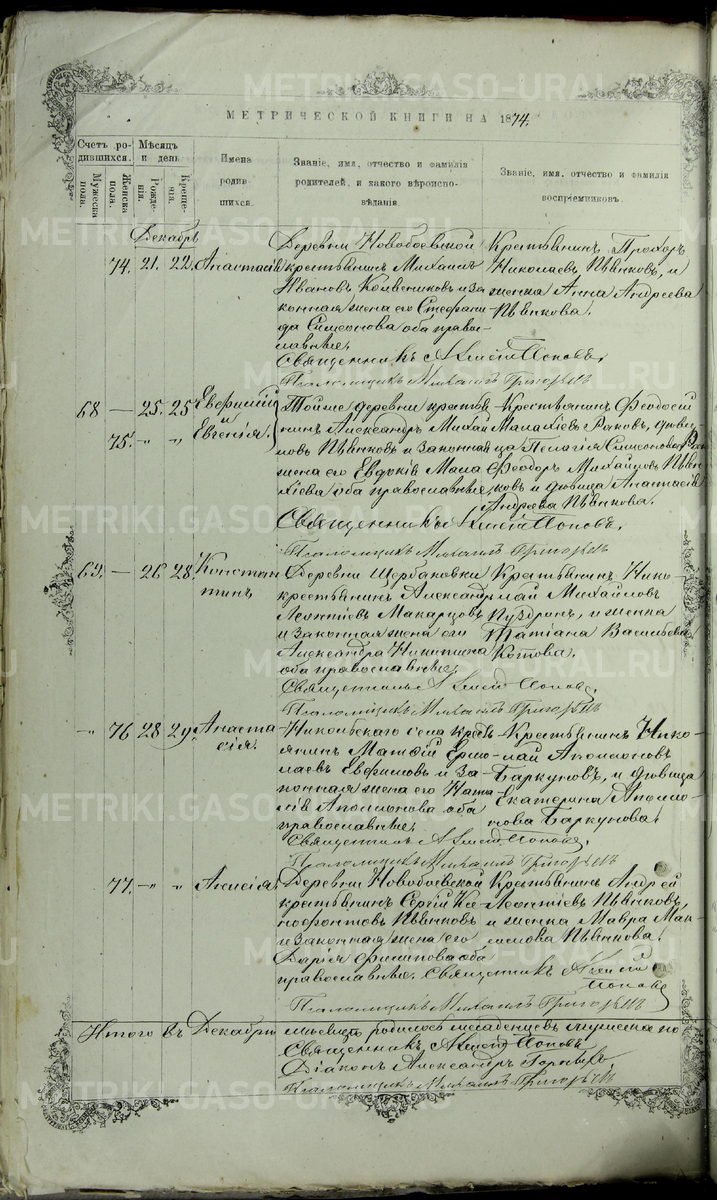 МЕТРИЧЕСКОЙ КНИГИ НА 1874.
Счетъ родившихся.
Мужеска пола.
Женска пола.
Мѣсяцъ и день
Рожденія.
Крещенія.
Имена родившихся.
Званіе, имя, отчество и фамилія родителей, и какого вѣроисповѣданія
Званіе, имя, отчество и фамилія воспріемниковъ.
Декабрь
74. 21. 22. Анастасія
Деревни Новобоевской
крестьянинъ Михаилъ
Ивановъ и за
конная жена его Стефани
да Симеонова оба право-
славные.
Крестьянинъ Прохоръ
Николаевъ Пьянковъ, и
женка Анна Андреева
Пьянкова.
Священникъ Алексій Поповъ.
Псаломщикъ Михаилъ Григорьевъ
68 — 25. 25 Евфимій
и
75. „ „ Евгенія.
Тойже деревни крестья
нинъ Александръ Михаи
ловъ Пьянковъ и законная
жена его Евдокія Мала
хіева оба православные,
Крестьянинъ Феодосій
Малахіевъ Раковъ, дѣви
ца Пелагія Симеонова
Феодоръ Михаиловъ Пьян
ковъ и дѣвица Анастасія
Андреева Пьянкова.
Священникъ Алексій Поповъ.
Псаломщикъ Михаилъ Григорьевъ
69. — 26 28. Констан
тинъ
Деревни Щербаковки
крестьянинъ Александръ
Леонтіевъ Макарцовъ
и законная жена его
Александра Никитина
оба православные,
Крестьянинъ Нико-
лай Михаиловъ
Пуздринъ, и женка
Татіана Васильева
Котова.
Священникъ Алексій Поповъ.
Псаломщикъ Михаилъ Григорьевъ
„ 76 28 29 Анаста
сія.
Никольскаго села кресть
янинъ Матѳій Ермо
лаевъ Евфимовъ и за
конная жена его Ната
лія Аполлонова оба
православные,
Крестьянинъ Нико-
лай Аполлоновъ
Баркуновъ, и дѣвица
Екатерина Аполло
нова Баркунова.
Священникъ Алексій Поповъ.
Псаломщикъ Михаилъ Григорьевъ
77. „ „ Анисія.
Деревни Новобоевской
крестьянинъ Сергій Ксе
нофонтовъ Пьянковъ
и законная жена его
Дарія Филипова оба
православные.
Крестьянинъ Андрей
Леонтіевъ Пьянковъ,
и женка Мавра Мак
симова Пьянкова.
Священникъ Алексій
Поповъ
Псаломщикъ Михаилъ Григорьевъ
Итого въ Декабрѣ мѣсяцѣ родилось младенцевъ мужеска по
Священникъ Алексій Поповъ
Діаконъ Александръ
Псаломщикъ Михаилъ Григорьевъ
METRIKI.GASO-URAL.RU